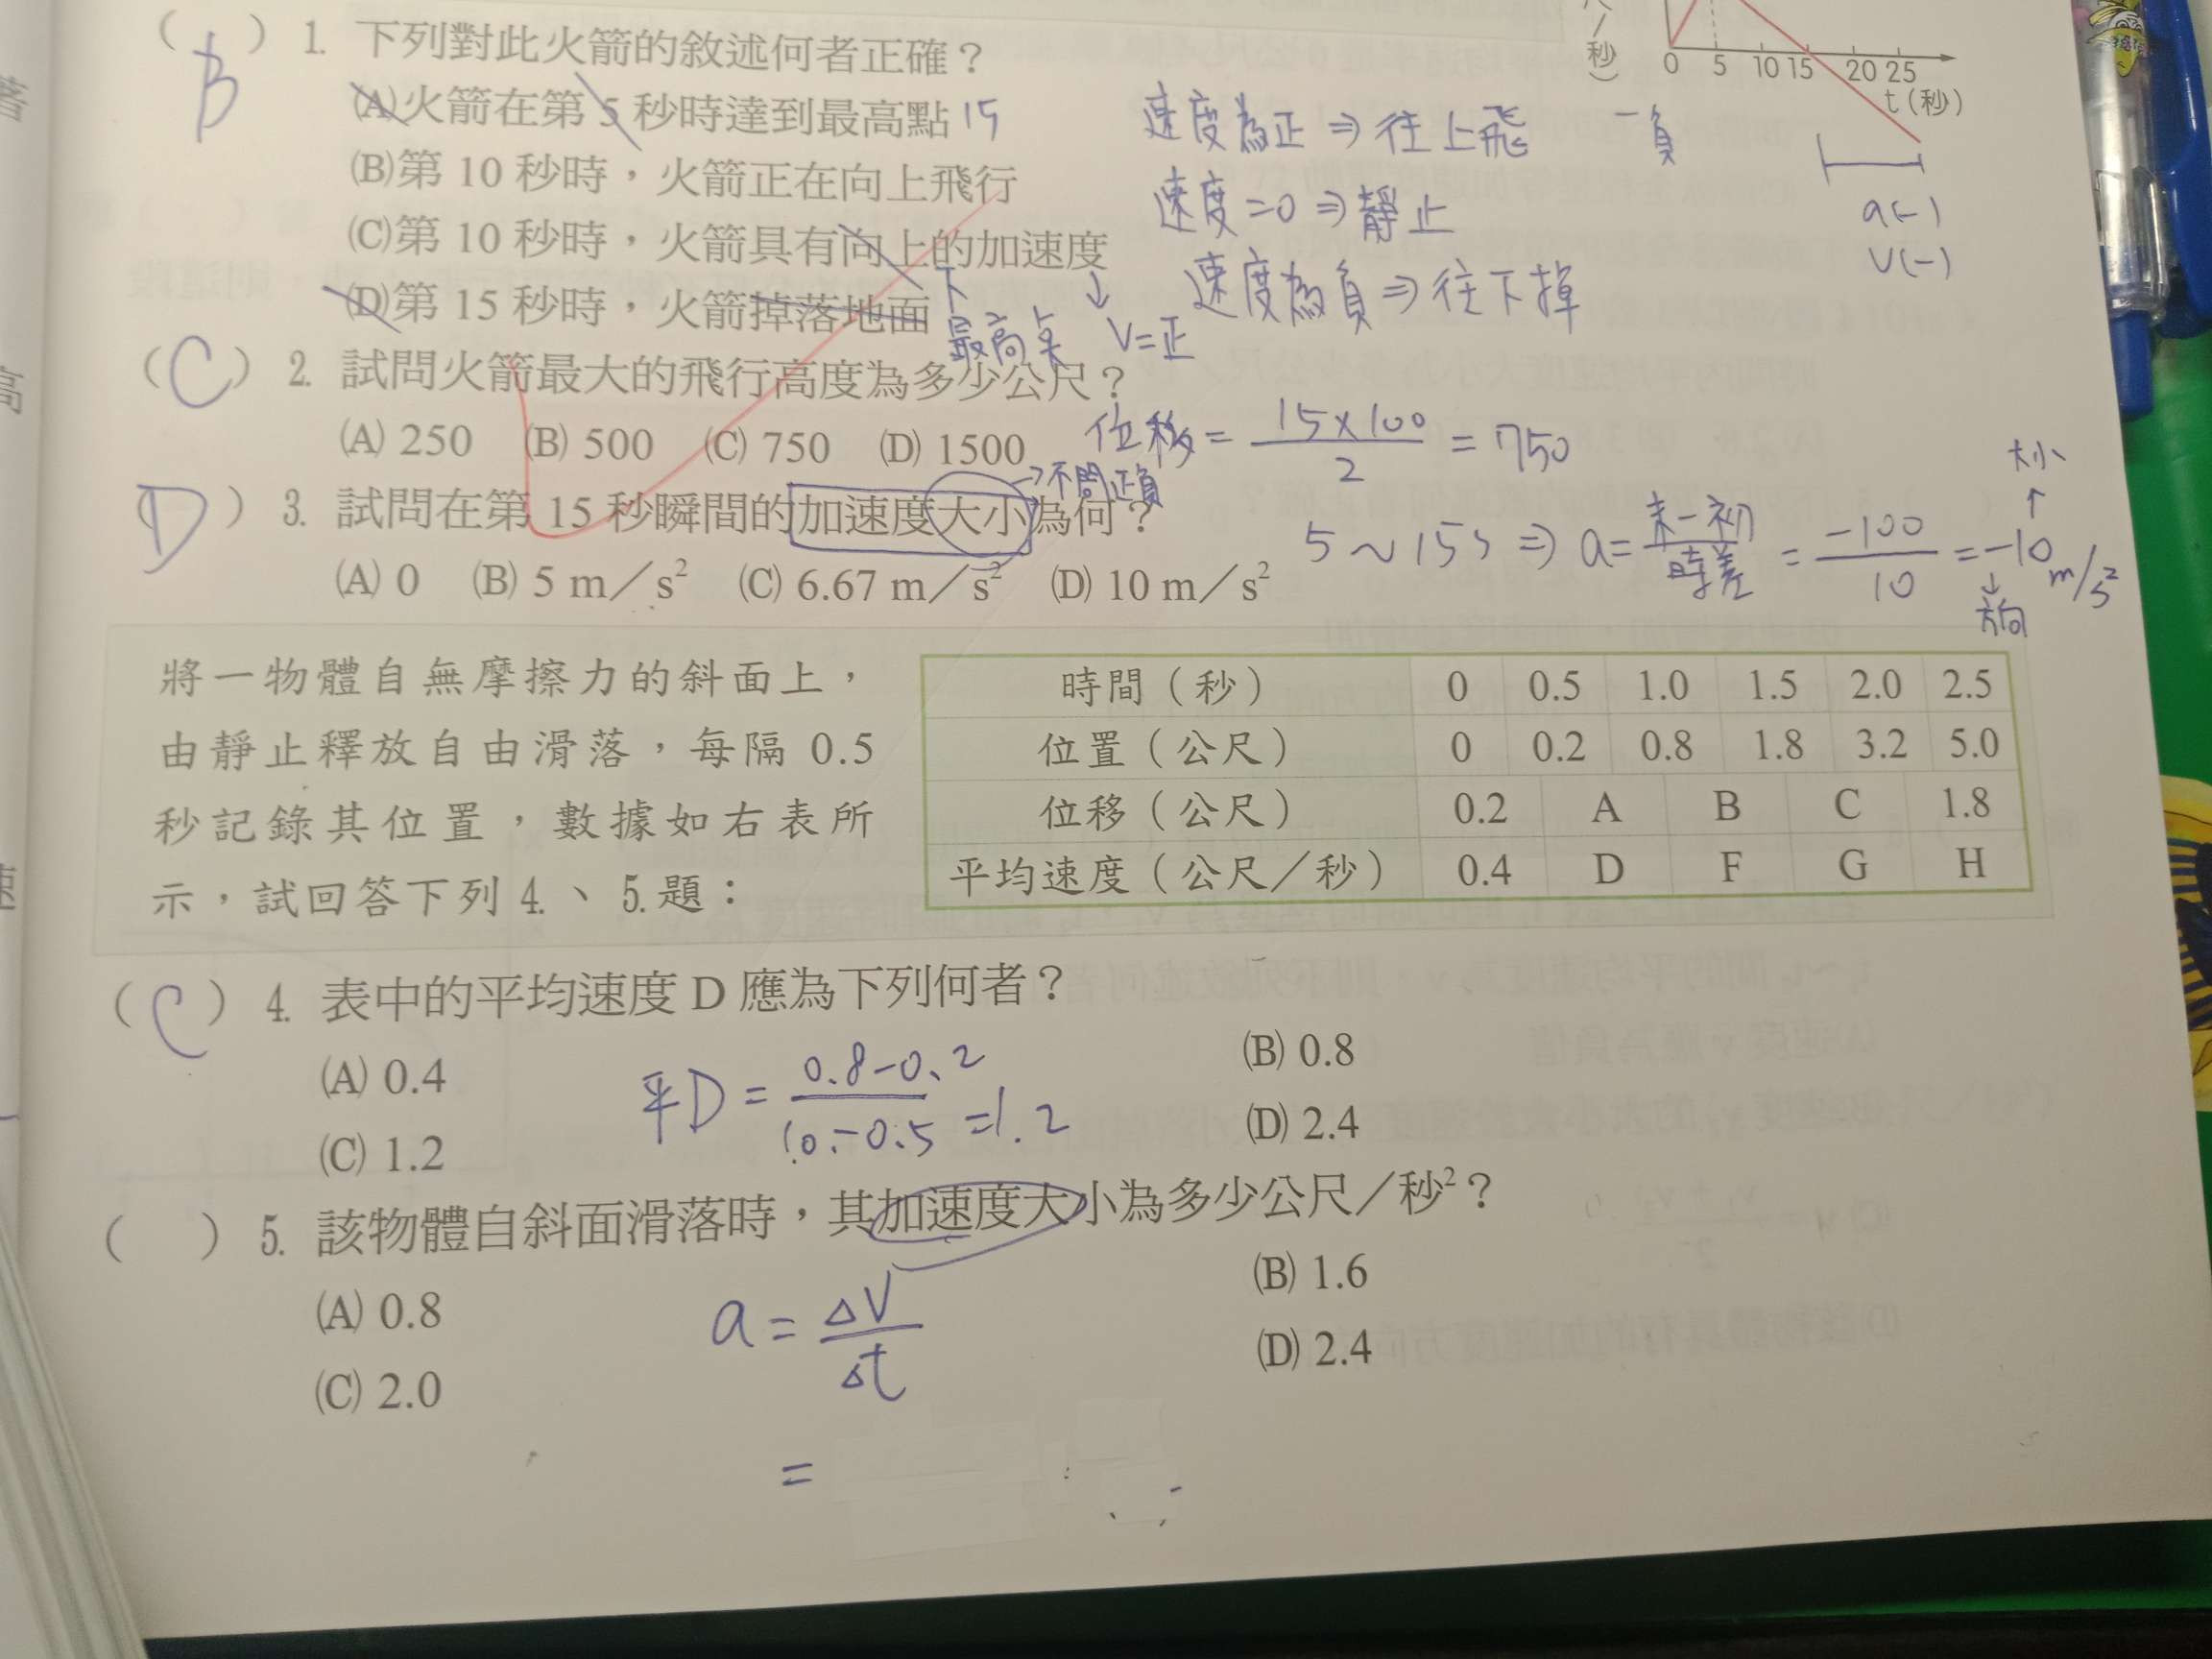 秒）
0 5 10 15 20 25
t（秒）
（B）1. 下列對此火箭的敘述何者正確？
(A)火箭在第 5 秒時達到最高點 15
(B)第 10 秒時，火箭正在向上飛行
(C)第 10 秒時，火箭具有向上的加速度
下
(D)第 15 秒時，火箭掉落地面
最高点
↓
V=正
速度為正 ⇒ 往上飛
速度=0 ⇒ 靜止
速度為負 ⇒ 往下掉
一負
a(-)
V(-)
（C）2. 試問火箭最大的飛行高度為多少公尺？
(A) 250 (B) 500 (C) 750 (D) 1500
位移 = 15×100 / 2 = 750
（D）3. 試問在第 15 秒瞬間的加速度大小為何？
→不問正負
(A) 0 (B) 5 m／s² (C) 6.67 m／s² (D) 10 m／s²
5～15s ⇒ a= 末-初 / 時差 = -100 / 10 = -10 m/s²
大小
↑
↓
方向
將一物體自無摩擦力的斜面上，
由靜止釋放自由滑落，每隔 0.5
秒記錄其位置，數據如右表所
示，試回答下列 4.、5.題：
時間（秒） 0 0.5 1.0 1.5 2.0 2.5
位置（公尺） 0 0.2 0.8 1.8 3.2 5.0
位移（公尺） 0.2 A B C 1.8
平均速度（公尺／秒） 0.4 D F G H
（C）4. 表中的平均速度 D 應為下列何者？
(A) 0.4 (B) 0.8
(C) 1.2 (D) 2.4
平D = 0.8-0.2 / 1.0-0.5 =1.2
（ ）5. 該物體自斜面滑落時，其加速度大小為多少公尺／秒²？
(A) 0.8 (B) 1.6
(C) 2.0 (D) 2.4
a = ΔV / Δt
=